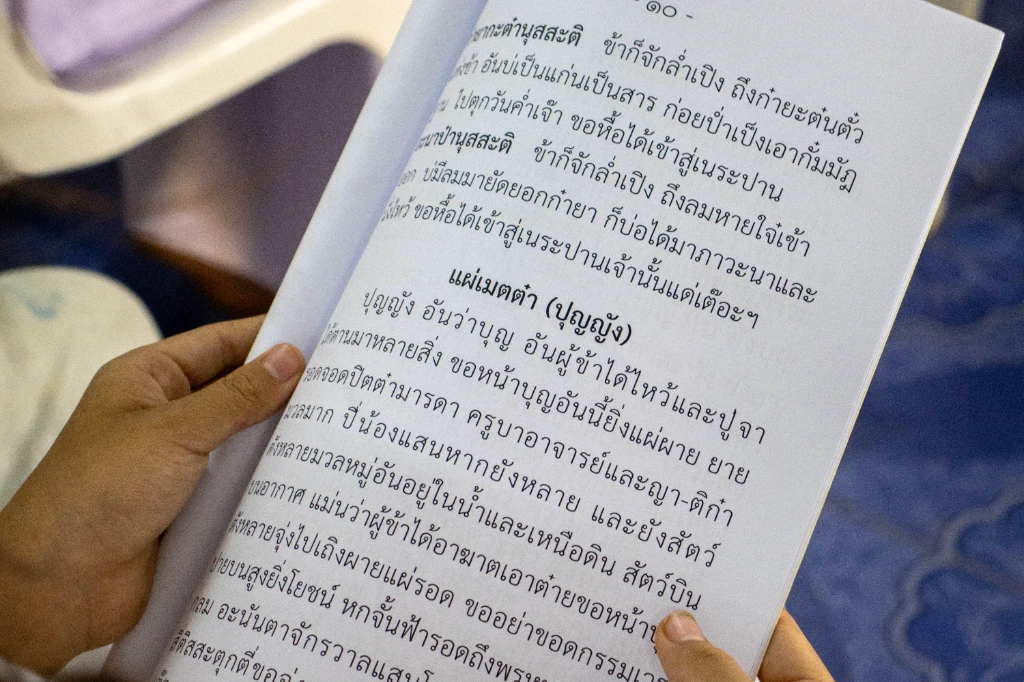 - ๑๐ -
ข้าก็จักล่ำเปิง ถึงก๋ายะต๋นตั๋ว
อันบ่เป็นแก่นเป็นสาร ก่อยป่ำเป็งเอากั๋มมัฏ
ไปตุกวันค่ำเจ๊า ขอหื้อได้เข้าสู่เนระปาน
ข้าก็จักล่ำเปิง ถึงลมหายใจ๋เข้า
บ่มีลมมายัดยอกก๋ายา ก็บ่อได้มาภาวะนาและ
ขอหื้อได้เข้าสู่เนระปานเจ้านั้นแด่เต๊อะฯ
แผ่เมตต๋า (ปุญญัง)
ปุญญัง อันว่าบุญ อันผู้ข้าได้ไหว้และปูจา
มาหลายสิ่ง ขอหน้าบุญอันนี้ยิ่งแผ่ผาย ยาย
รอดจอดปิตต๋ามารดา ครูบาอาจารย์และญา-ติก๋า
มวลมาก ปี่น้องแสนหากยังหลาย และยังสัตว์
ตังหลายมวลหมู่อันอยู่ในน้ำและเหนือดิน สัตว์บิน
บนอากาศ แม่นว่าผู้ข้าได้อาฆาตเอาต๋ายขอหน้า
ตังหลายจุ่งไปเถิงผายแผ่รอด ขออย่าขอดกรรมเวร
บนสูงยิ่งโยชน์ หกจั้นฟ้ารอดถึง
อะนันตาจักรวาล